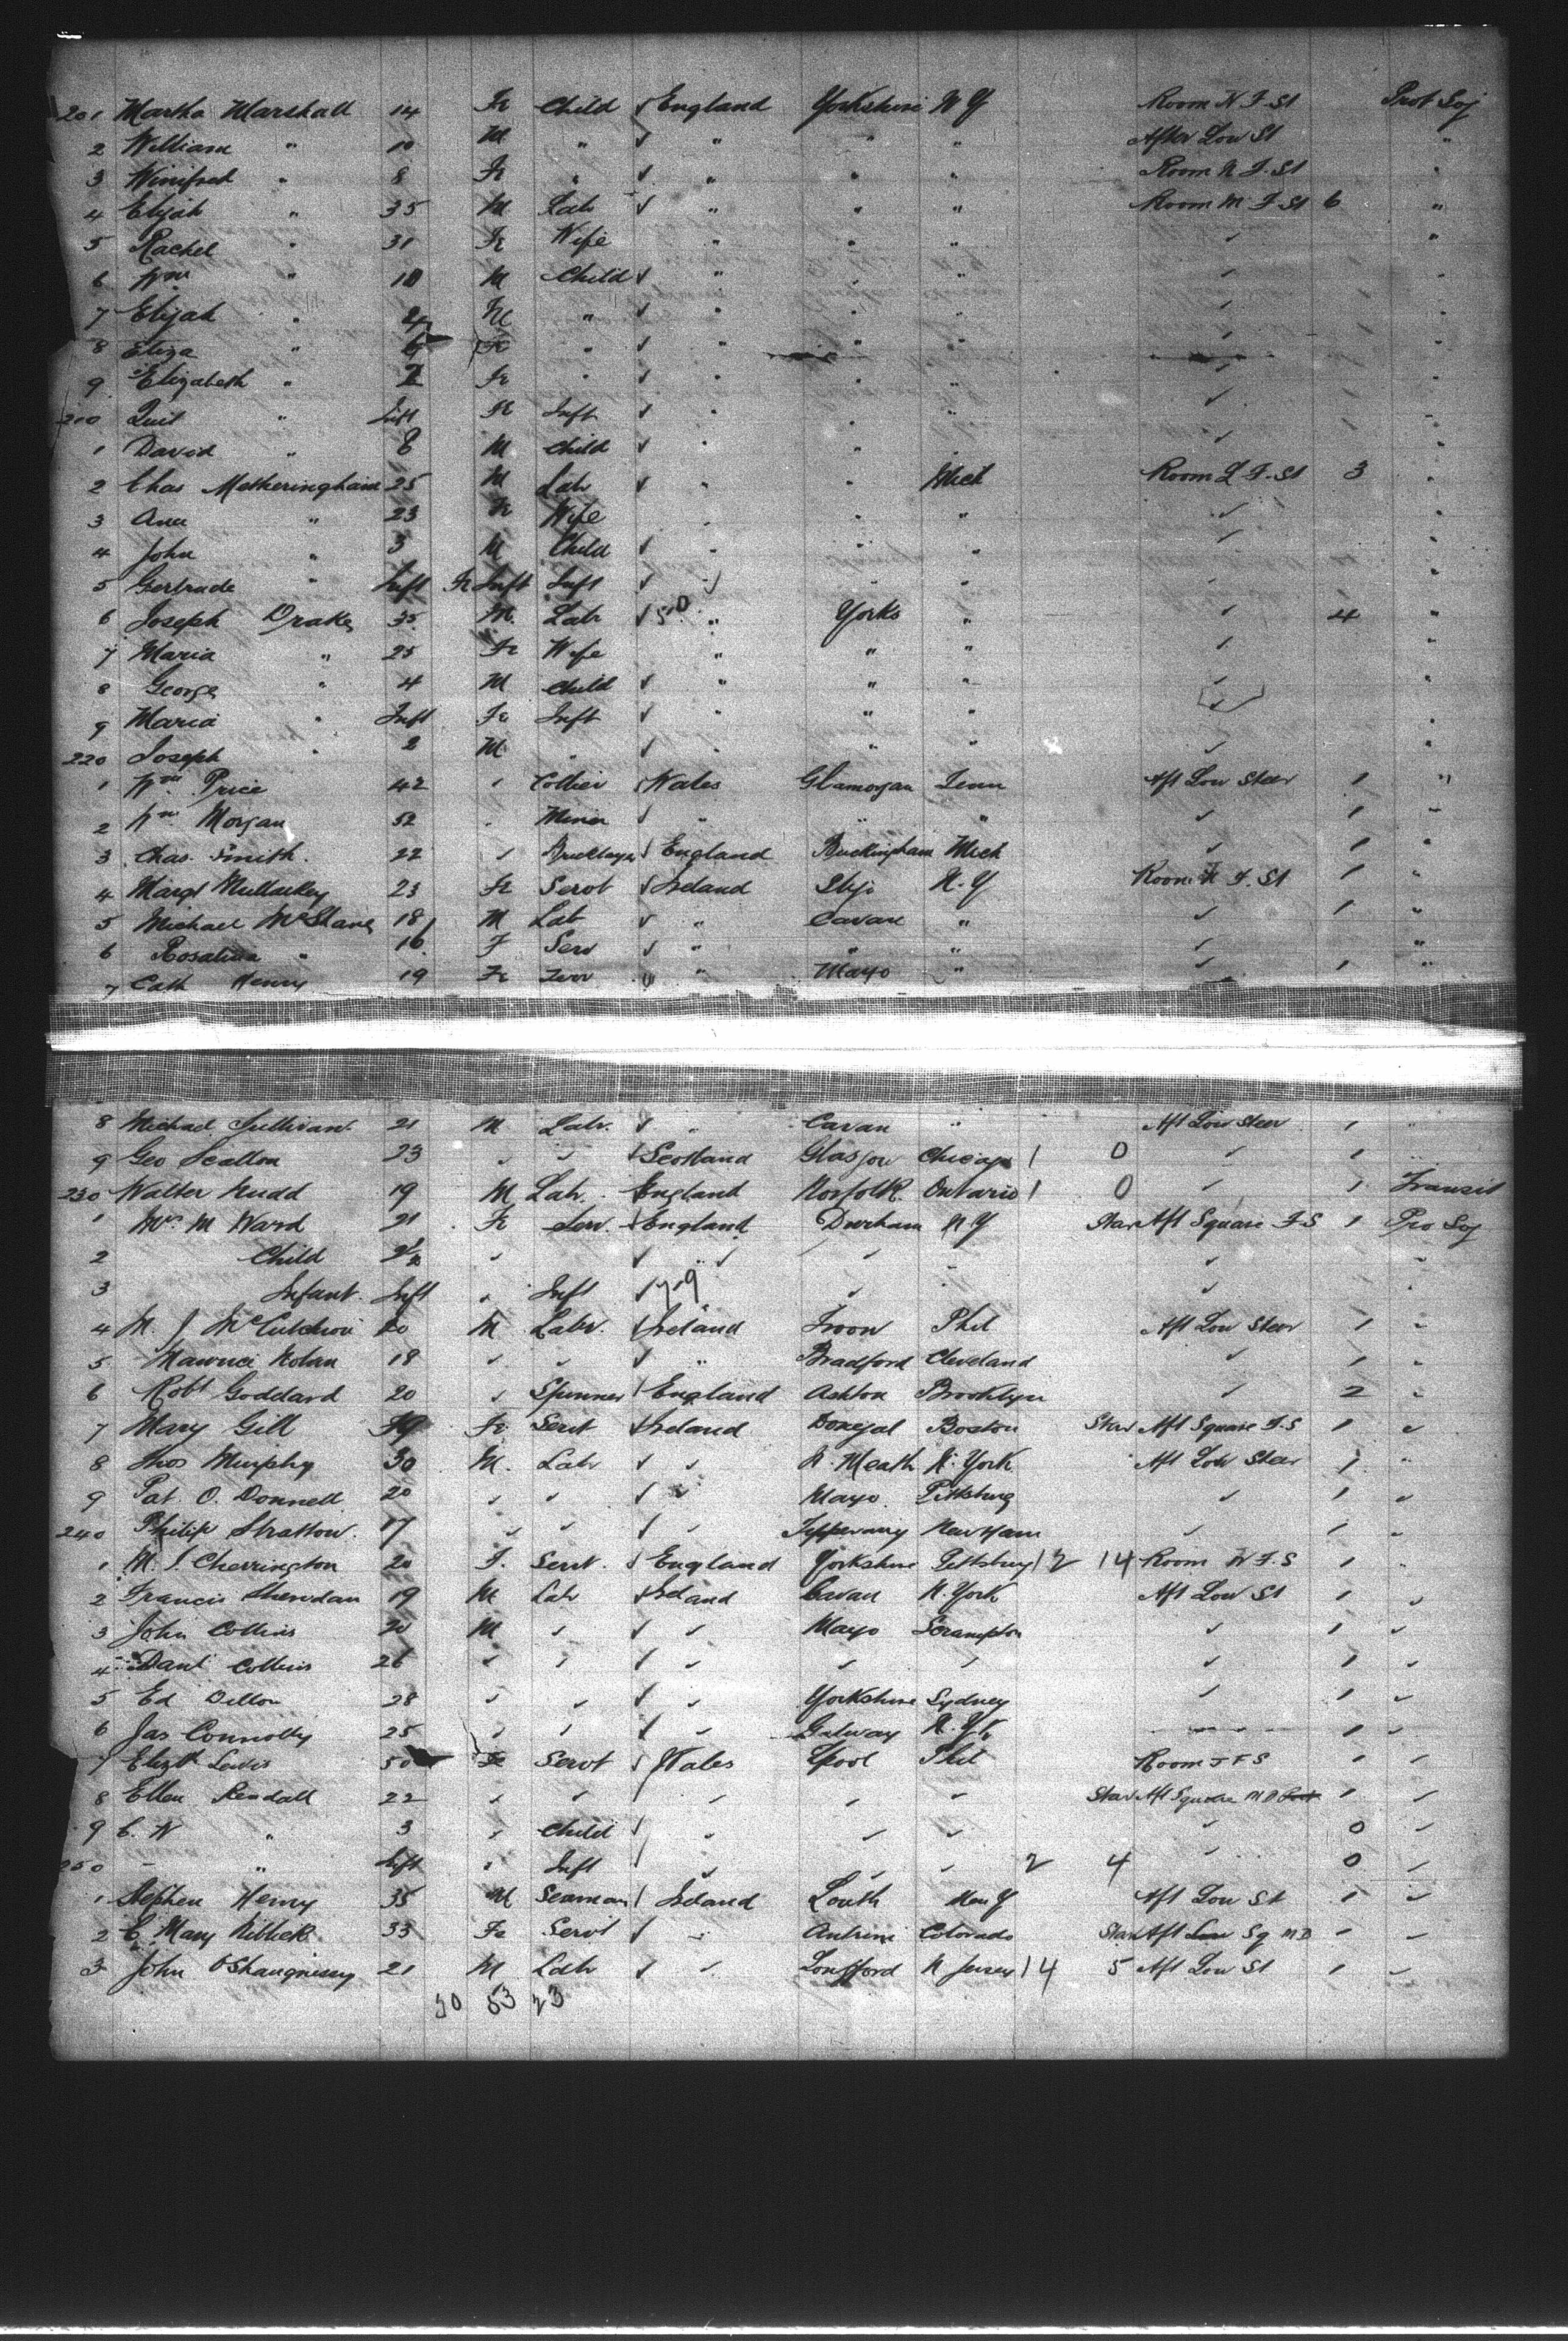 201 Martha Marshall 14 Fe Child √ England Yorkshire N Y Room N F. St Prot Soj
2 William " 10 M " √ " " " After Low St "
3 Winifred " 8 Fe " √ " " " Room N F. St "
4 Elijah " 35 M Lab √ " " " Room M F St 6 "
5 Rachel " 31 Fe Wife " " " ✓ "
6 Wm " 10 M Child √ " " " ✓ "
7 Elijah " 4 M " √ " " " ✓ "
8 Eliza " 6 Fe " √ " " " ✓ "
9 Elizabeth " 2 Fe " √ " " " ✓ "
210 " Inft Inft √ " " ✓ "
1 David " 8 M Child √ " " " ✓ "
2 Chas Metheringham 25 M Lab √ " " Mich Room L F. St 3 "
3 Ann " 23 Fe Wife " " " ✓ "
4 John " 3 M Child √ " " " ✓ "
5 Gertrude " Inft Fe Inft Inft √ " " " ✓ "
6 Joseph Drake 35 M. Lab √ 50 " Yorks " ✓ 4 "
7 Maria " 25 Fe Wife " " " ✓ "
8 George " 4 M Child √ " " " ✓ "
9 Maria " Inft Fe Inft √ " " " ✓ "
220 Joseph " 2 M. " √ " " " ✓ "
1 Wm Price 42 " Collier √ Wales Glamorgan Tenn Aft Low Steer 1 "
2 Wm Morgan 52 " Miner √ " " " ✓ 1 "
3 Chas. Smith. 22 ✓ Bricklayer √ England Buckingham Mich ✓ 1 "
4 Margt Mullarkey 23 Fe Servt √ Ireland Sligo N. Y Room N F. St 1 "
5 Michael McShane 18 M Lab √ " Cavan " ✓ 1 "
6 Rosalina " 16 F Serv √ " " " ✓ "
7 Cath Henry 19 Fe Serv √ " Mayo " ✓ 1 "
8 Michael Sullivan. 21 M Labr. √ " Cavan " Aft Low Steer 1 "
9 Geo Scallon 23 ✓ ✓ √ Scotland Glasgow Chicago 1 0 ✓ 1 "
230 Walter Rudd 19 M Lab. England Norfolk Ontario 1 0 ✓ 1 Transit
1 Mrs M Ward 21 Fe Serv. √ England Durham N Y Star Aft Square F S 1 Pro Soj
2 Child 2½ ✓ √ " ✓ ✓ ✓ "
3 Infant. Inft " Inft √ 79 ✓ ✓ "
4 M. J McCutcheon 20 M Labr. √ Ireland Troon Phil Aft Low Steer 1 "
5 Nolan 18 ✓ ✓ √ " Bradford Cleveland ✓ 1 "
6 Robt Goddard 20 ✓ Spinner √ England Ashton Brooklyn ✓ 2 "
7 Mary Gill Fe Servt √ Ireland Donegal Boston Star Aft Square F. S 1 "
8 Thos Murphy 30 M. Lab √ ✓ Meath N. York Aft Low Steer 1 "
9 Pat. O. Donnell 20 ✓ ✓ √ " Mayo Pittsburg ✓ 1 ✓
240 Philip Stratton. 17 ✓ ✓ √ ✓ Tipperary New Ham ✓ 1 ✓
1 M. J. Cherrington 20 F. Servt. √ England Yorkshire Pittsburg 12 14 Room N F. S 1 "
2 Francis Sheridan 19 M Lab √ Ireland Cavan N. York Aft Low St 1 ✓
3 John Collins 20 M ✓ √ ✓ Mayo Scrampton ✓ 1 ✓
4 Danl Collins 26 ✓ ✓ √ ✓ ✓ ✓ ✓ 1 ✓
5 Ed Dillon 28 ✓ ✓ √ ✓ Yorkshire Sydney ✓ 1 ✓
6 Jas Connolly 25 ✓ ✓ √ ✓ Galway N. Yk 1 ✓
7 Elizth Lewis 50 Fe Servt √ Wales Lpool Phil Room F S 1 ✓
8 Ellen Kendall 22 ✓ ✓ √ ✓ ✓ ✓ Star Aft Square M D 1 ✓
9 C. W " 3 ✓ Child √ ✓ ✓ ✓ ✓ 0 ✓
250 - " Inft " Inft √ ✓ ✓ ✓ 2 4 ✓ 0 ✓
1 Stephen Henry 35 M Seaman √ Ireland Louth New Y Aft Low St 1 ✓
2 C. Mary Niblick 33 Fe Servt √ ✓ Antrim Colorado Star Aft Low Sq M D 1 ✓
3 John O'Shaugnessy 21 M Lab √ ✓ Longford N Jersey 14 5 Aft Low St 1 ✓
30 53 23